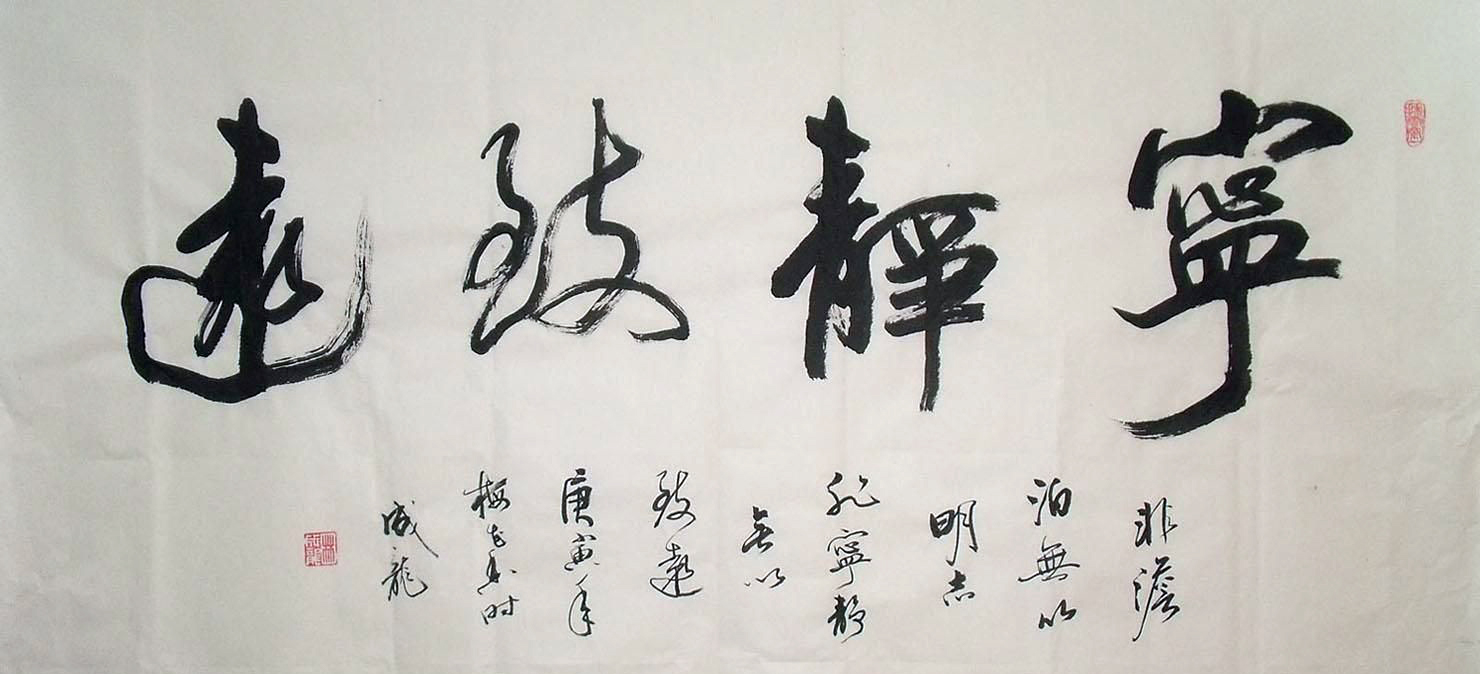 寧靜致遠
非澹
泊無以
明志
非寧静
無以
致遠
庚寅年
梅花香时
成龍